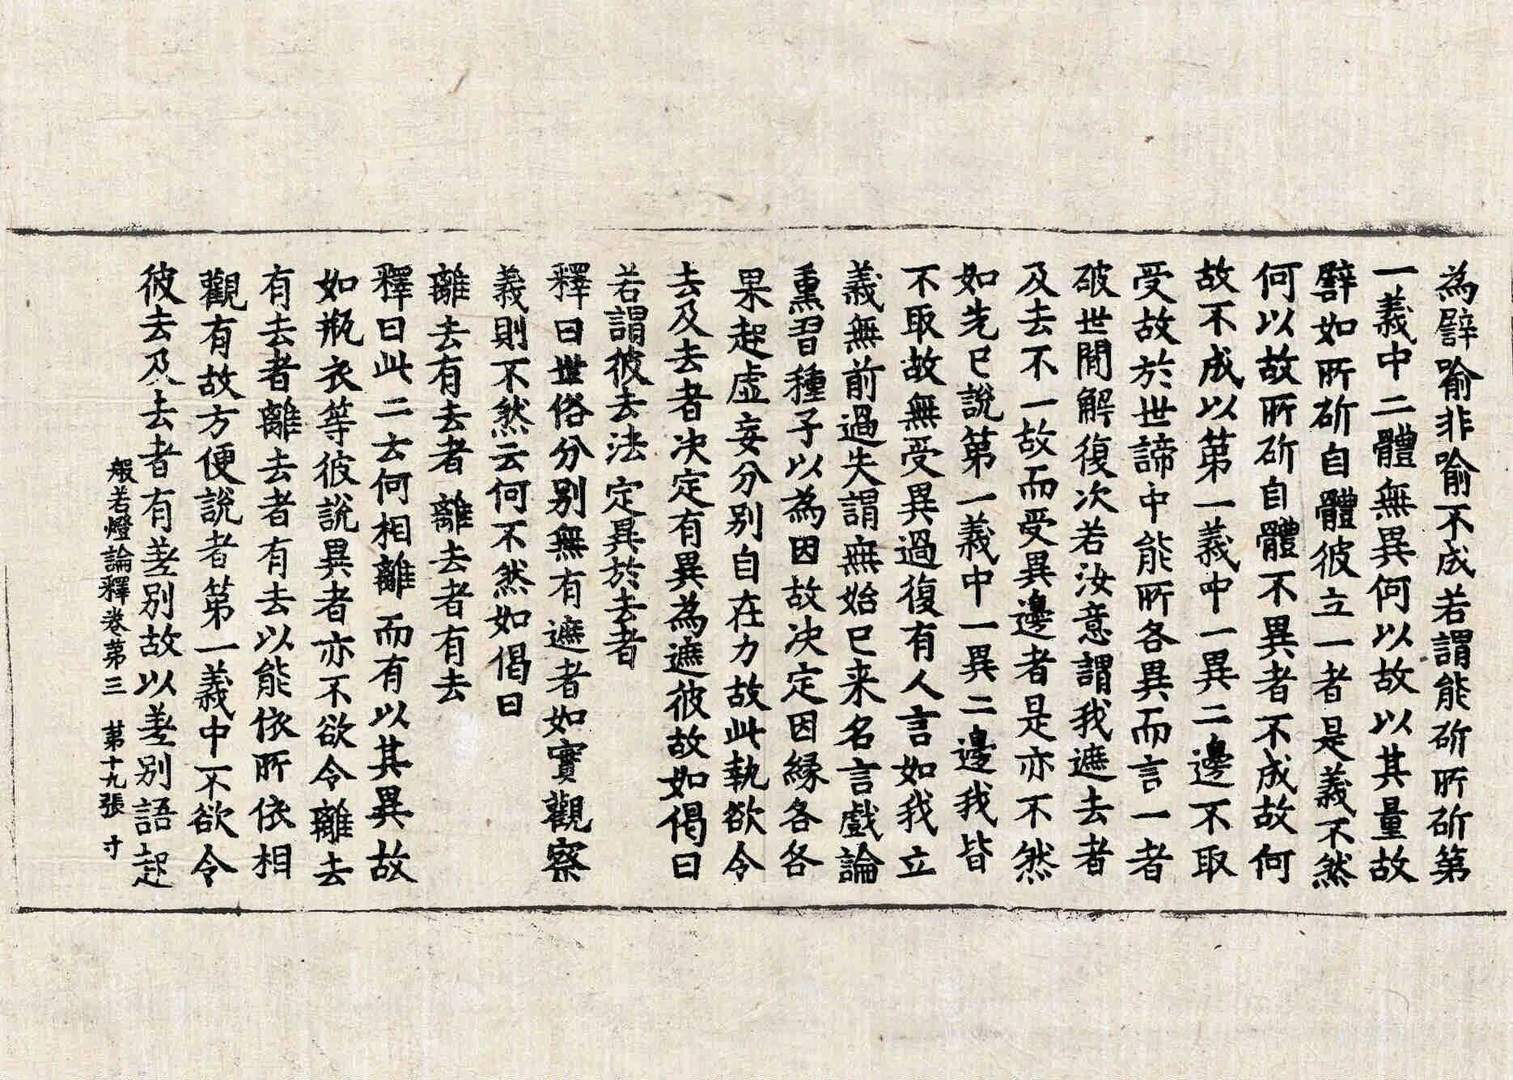 為譬喻非喻不成若謂能斫所斫第
一義中二體無異何以故以其量故
譬如所斫自體彼立一者是義不然
何以故所斫自體不異者不成故何
故不成以第一義中一異二邊不取
受故於世諦中能所各異而言一者
破世間解復次若汝意謂我遮去者
及去不一故而受異邊者是亦不然
如先已說第一義中一異二邊我皆
不取故無受異過復有人言如我立
義無前過失謂無始已来名言戲論
熏習種子以為因故決定因緣各各
果起虛妄分別自在力故此執欲令
去及去者決定有異為遮彼故如偈曰
若謂彼去法定異於去者
釋曰世俗分別無有遮者如實觀察
義則不然云何不然如偈曰
離去有去者離去者有去
釋曰此二云何相離而有以其異故
如瓶衣等彼說異者亦不欲令離去
有去者離去者有去以能依所依相
觀有故方便說者第一義中不欲令
彼去及去者有差別故以差別語起
般若燈論釋卷第三 第十九張 寸